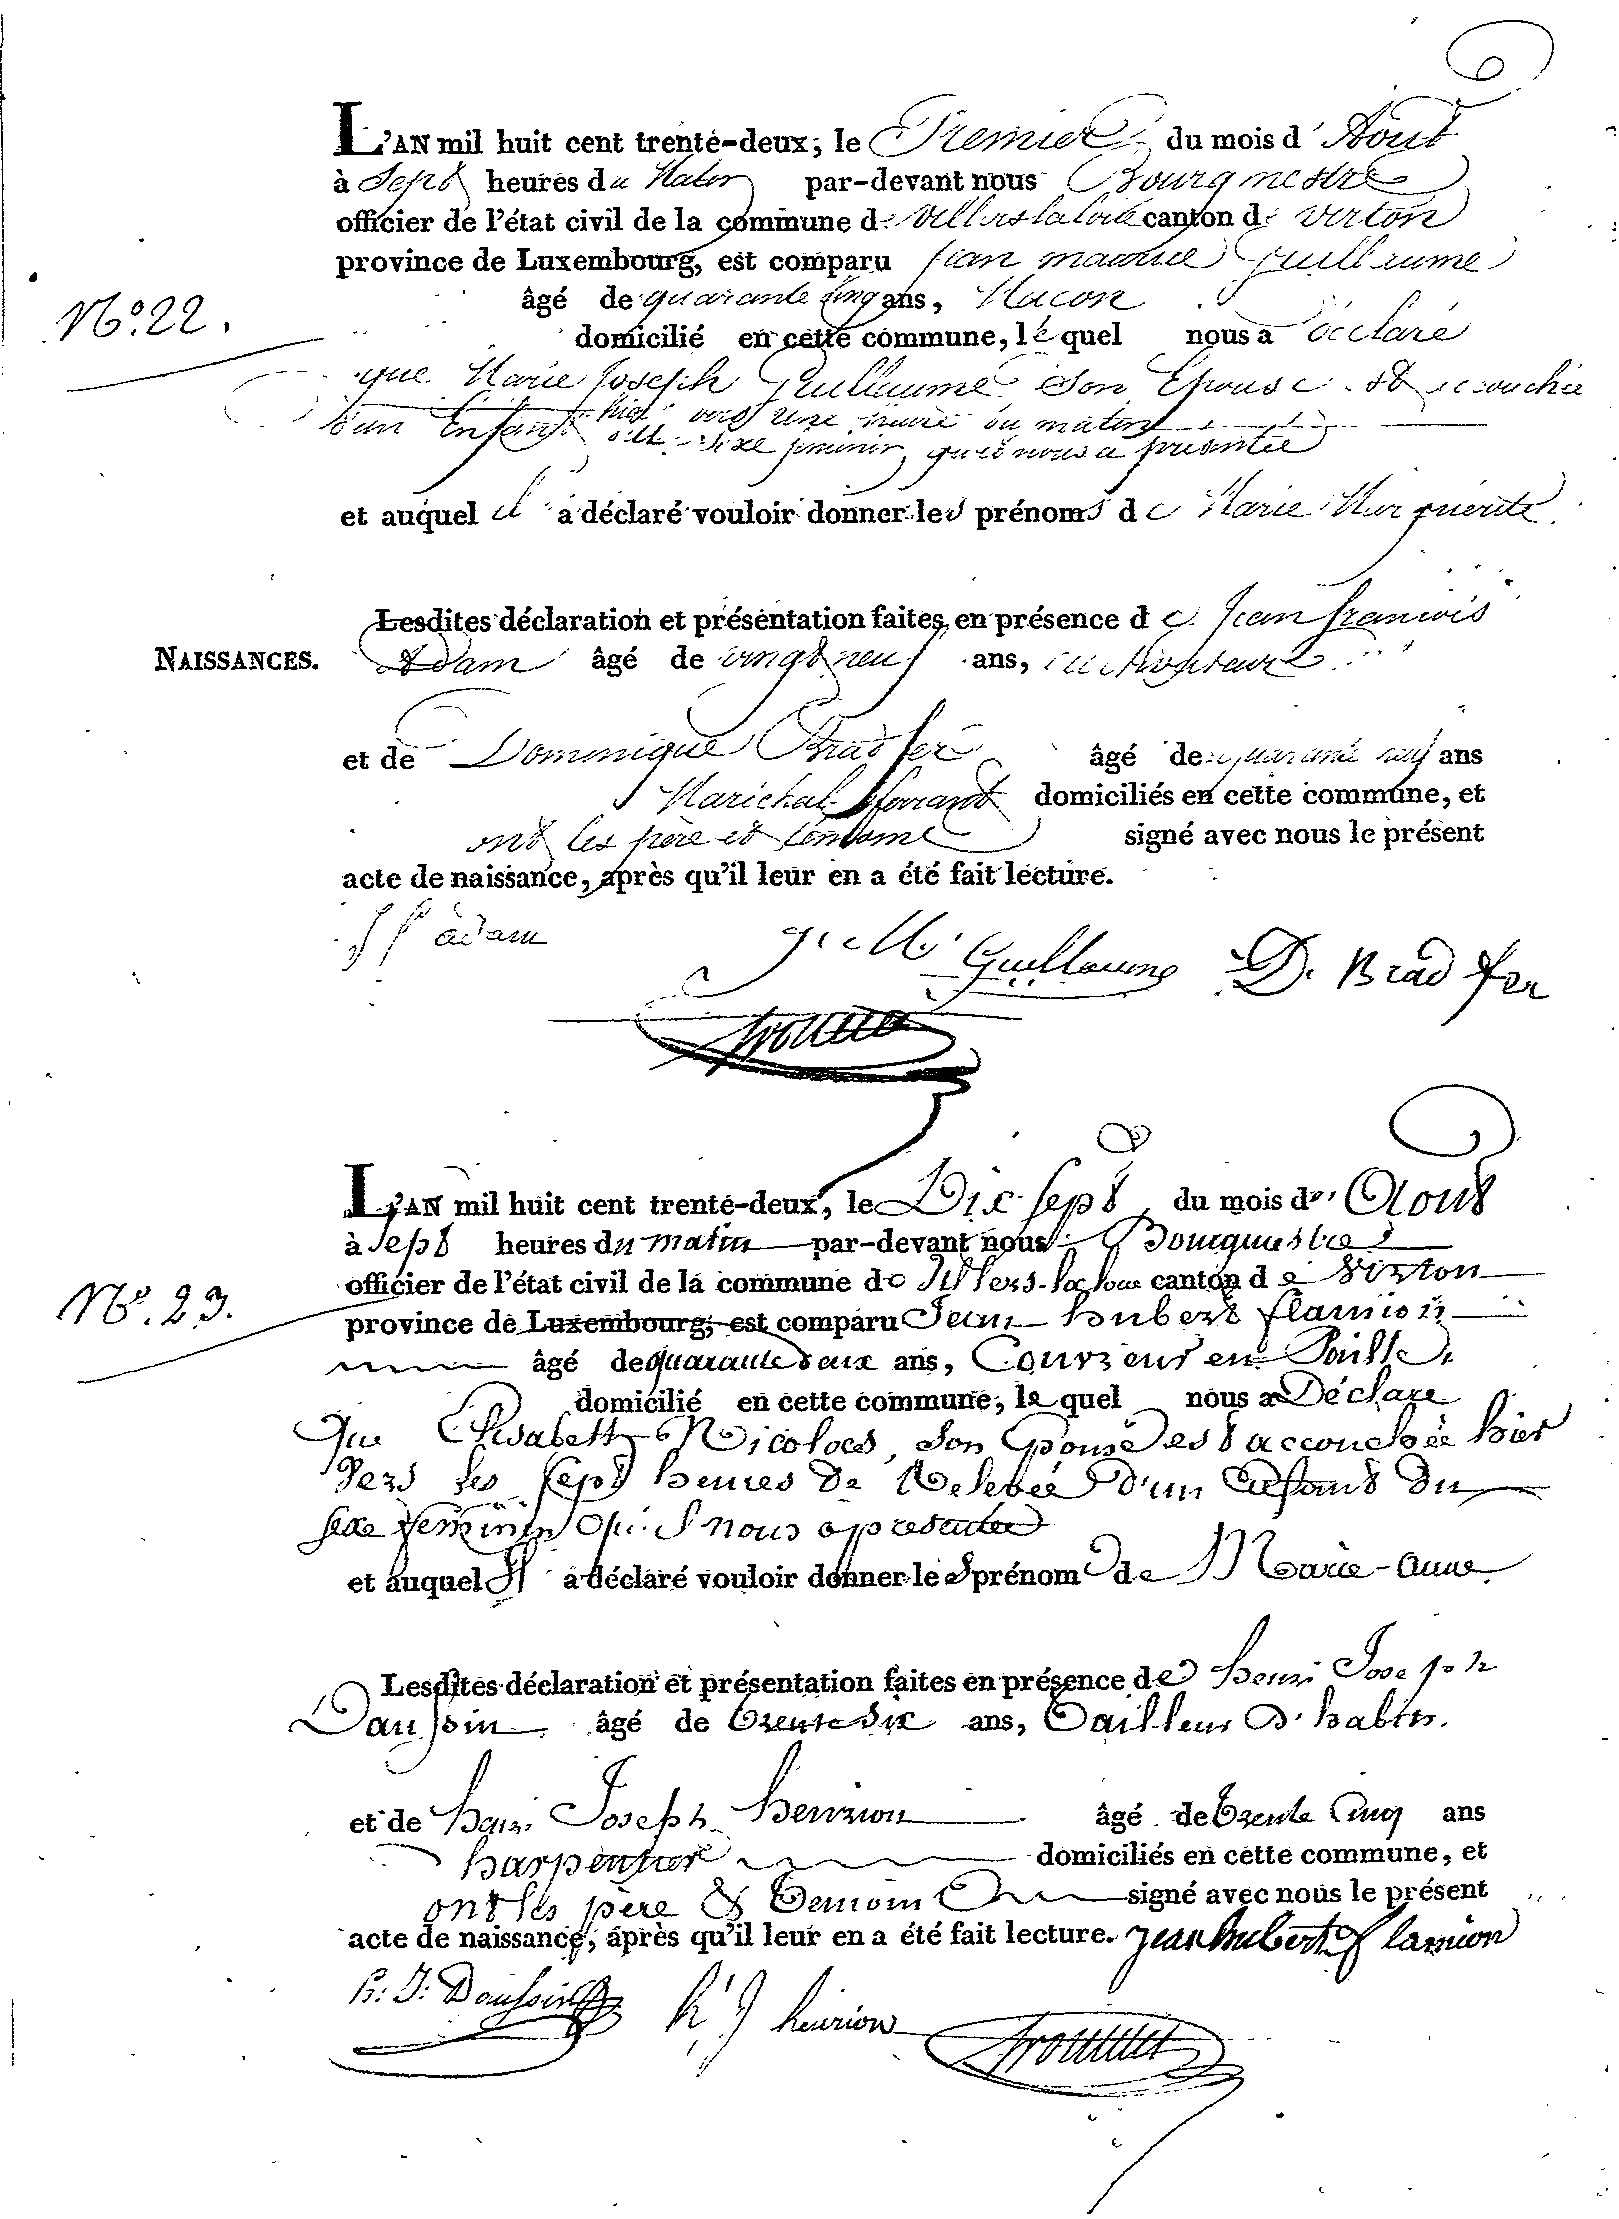 L'AN mil huit cent trente-deux, le Premier du mois d'Aout
à Sept heures du Matin par-devant nous Bourgmestre
officier de l'état civil de la commune de Villers la loue canton de Virton
province de Luxembourg, est comparu jean maurice Guillaume
N.º 22.
âgé de quarante cinq ans, Macon
domicilié en cette commune, lequel nous a déclaré
que Marie Joseph Guillaume son Epouse est accouchée
hier vers une heure du matin
d'un Enfant du sexe feminin, qu'il nous a présentée
et auquel il a déclaré vouloir donner les prénoms de Marie Marguerite
Lesdites déclaration et présentation faites en présence de Jean francois
NAISSANCES.
Adam âgé de vingt neuf ans, cultivateur
et de Dominique Bradfer âgé de quarante neuf ans
Marichal ferrant domiciliés en cette commune, et
ont les père et temoins signé avec nous le présent
acte de naissance, après qu'il leur en a été fait lecture.
J f adam J. M. Guillaume D. Bradfer
L'AN mil huit cent trente-deux, le Dix-Sept du mois d'Aout
à Sept heures du matin par-devant nous Bourgmestre
officier de l'état civil de la commune de Villers-la-loue canton de Virton
N.º 23.
province de Luxembourg, est comparu Jean hubert flamion
âgé de quarante deux ans, Couvreur en Paille
domicilié en cette commune, lequel nous a Déclare
Que Elisabeth Nicolas, Son Epouse est accouchée hier
Vers les Sept heures de Relevée d'un Enfant du
sexe feminin qu'il nous a présentée
et auquel il a déclaré vouloir donner les prénoms de Marie-Anne
Lesdites déclaration et présentation faites en présence de henri Joseph
Daussin âgé de trente six ans, Tailleur d'habits.
et de henri Joseph henrion âgé de trente Cinq ans
Charpentier domiciliés en cette commune, et
ont les père & Temoins signé avec nous le présent
acte de naissance, après qu'il leur en a été fait lecture. jean hubert flamion
h: J: Daussin h J henrion